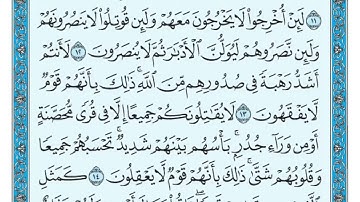 ١١ لَئِنْ أُخْرِجُوا۟ لَا يَخْرُجُونَ مَعَهُمْ وَلَئِن قُوتِلُوا۟ لَا يَنصُرُونَهُمْ
وَلَئِن نَّصَرُوهُمْ لَيُوَلُّنَّ ٱلْأَدْبَـٰرَ ثُمَّ لَا يُنصَرُونَ ١٢ لَأَنتُمْ
أَشَدُّ رَهْبَةً فِى صُدُورِهِم مِّنَ ٱللَّهِ ۚ ذَٰلِكَ بِأَنَّهُمْ قَوْمٌ
لَّا يَفْقَهُونَ ١٣ لَا يُقَـٰتِلُونَكُمْ جَمِيعًا إِلَّا فِى قُرًى مُّحَصَّنَةٍ
أَوْ مِن وَرَآءِ جُدُرٍۭ ۚ بَأْسُهُم بَيْنَهُمْ شَدِيدٌ ۚ تَحْسَبُهُمْ جَمِيعًا
وَقُلُوبُهُمْ شَتَّىٰ ۚ ذَٰلِكَ بِأَنَّهُمْ قَوْمٌ لَّا يَعْقِلُونَ ١٤ كَمَثَلِ